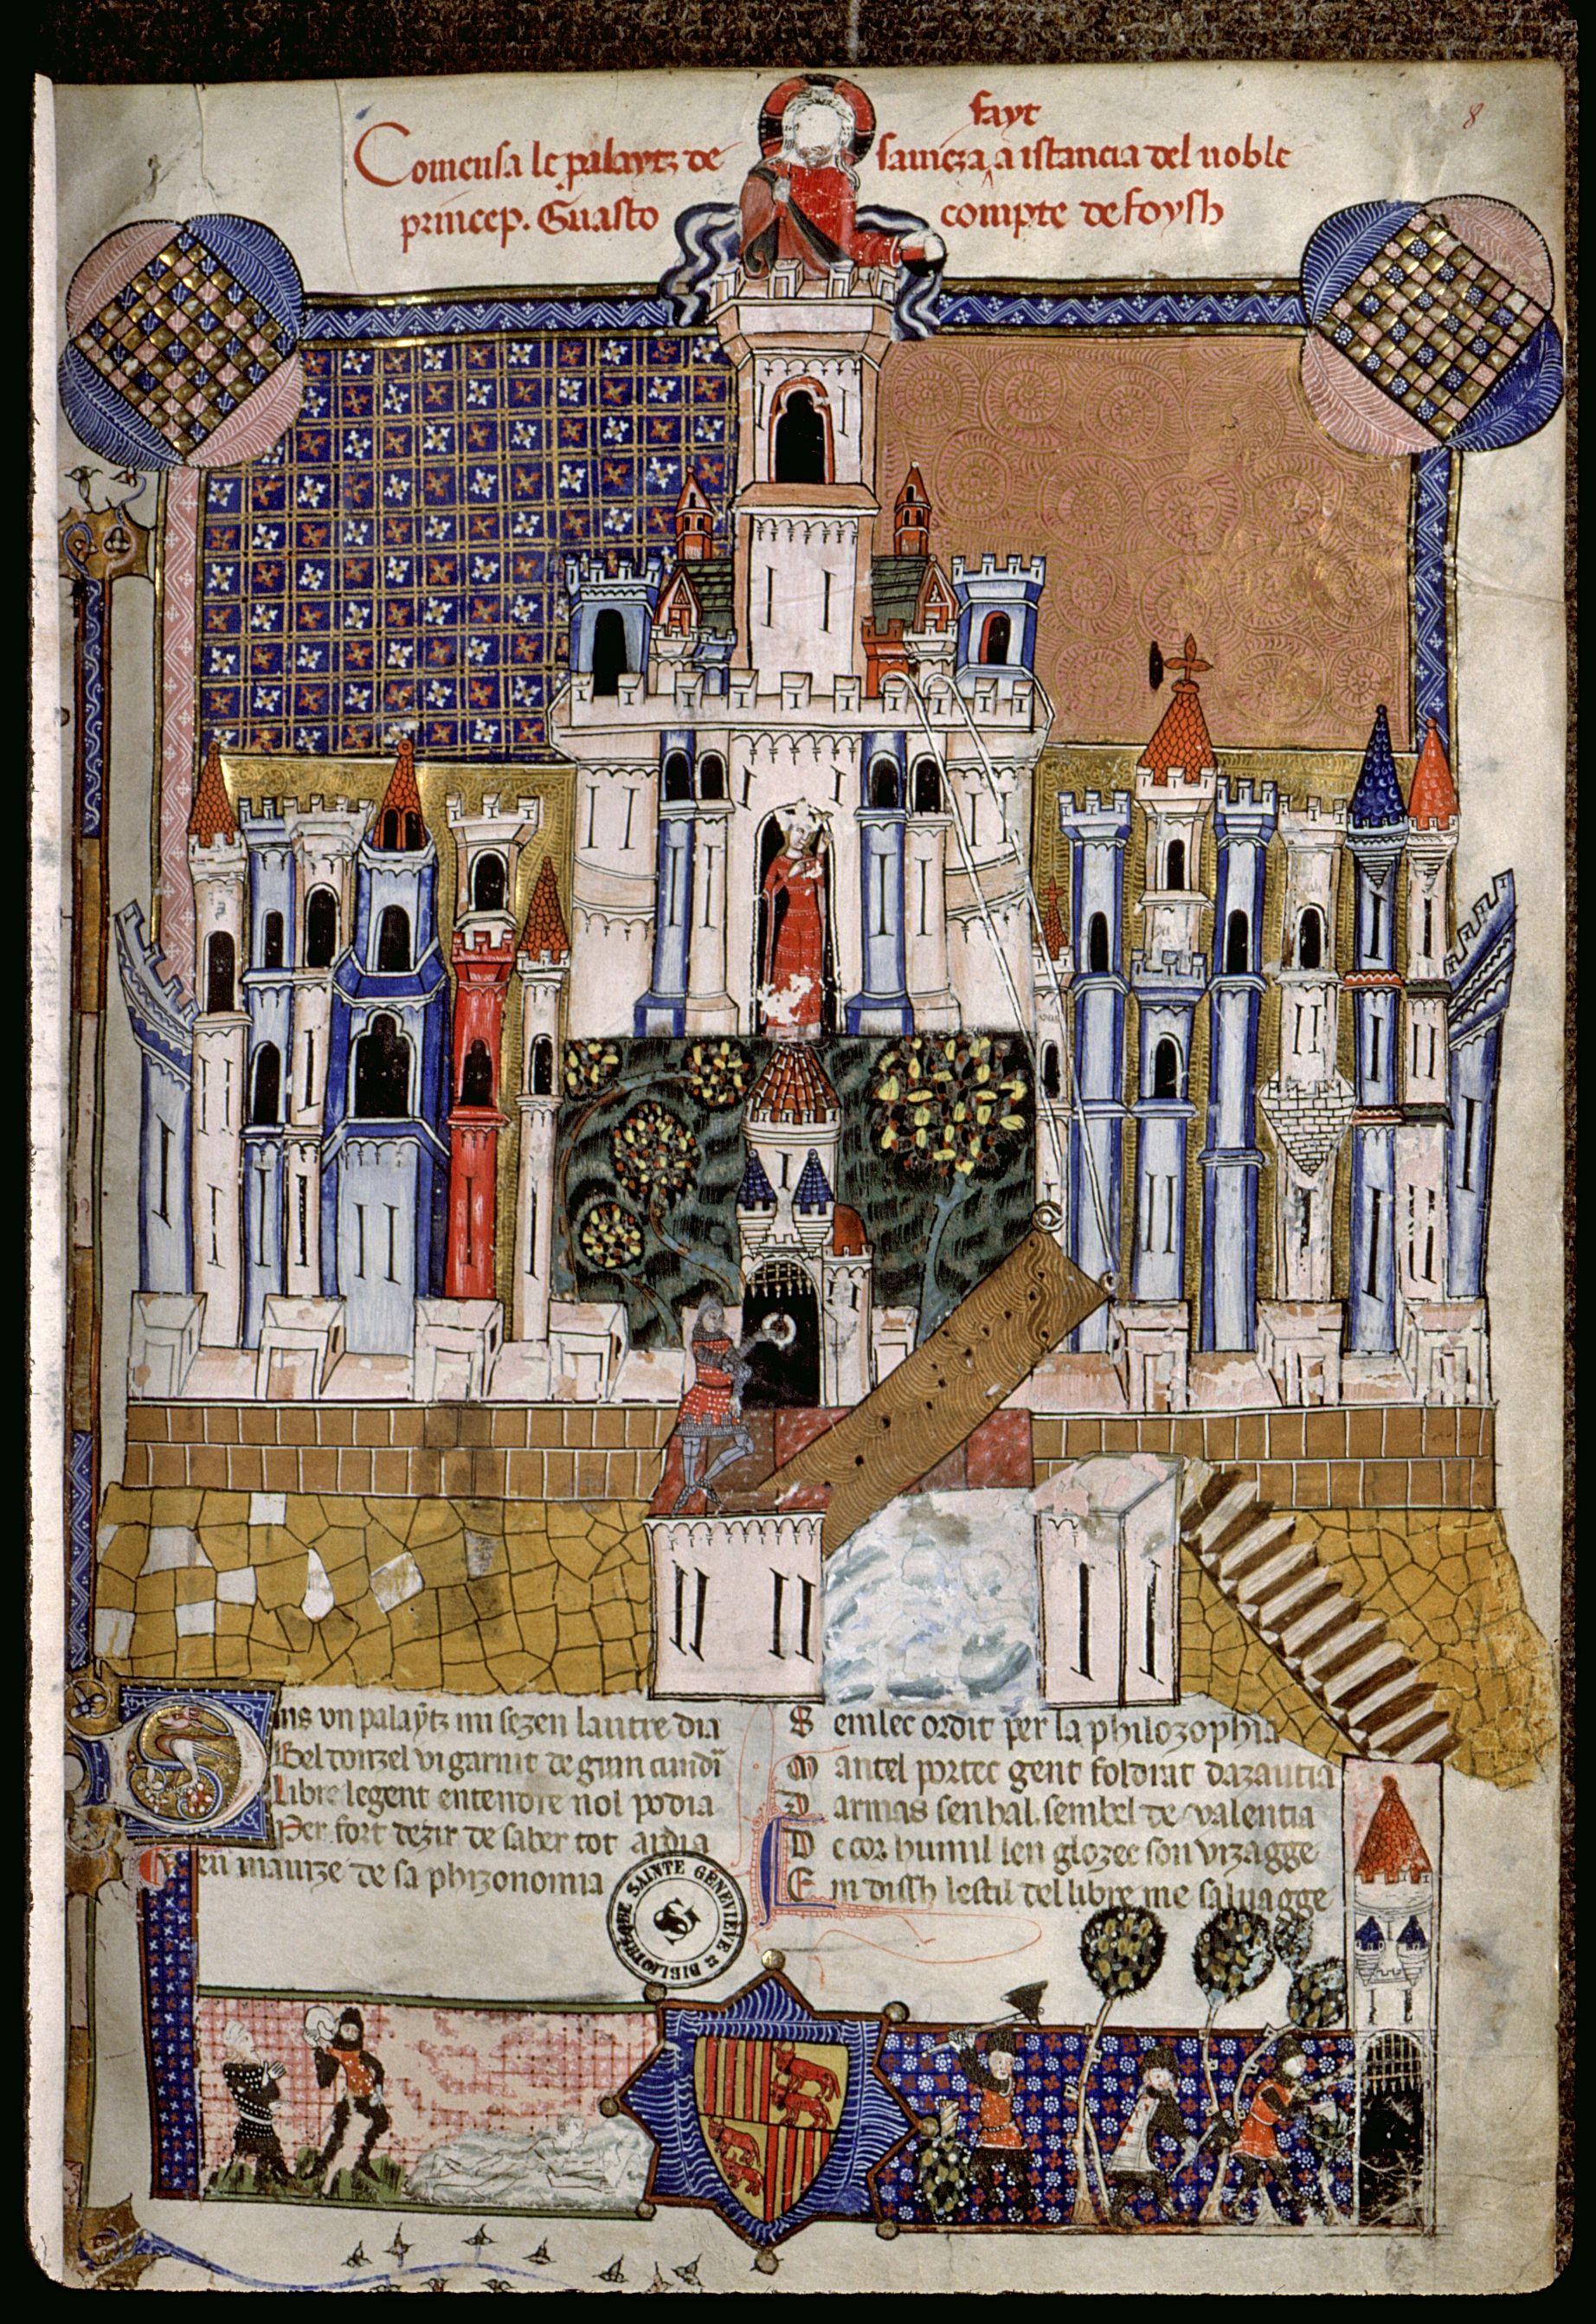 fayt
Comensa le palaytz de savieza, a istancia del noble
princep. Guasto compte de foysh
8
Sins un palaytz mi sezen lautre dia
Bel donzel vi garnit de gran cundi
Libre legent entendre nol podia
Per fort dezir de saber tot ardia
en manize de sa phizonomia
S emlec ordit per la philozophia
M antel portec gent foldrat dazautia
D armas senhal, sembel de valentia
D e cor humil len glozec son vizagge
E m dissh lestil del libre me salvagge
BIBLIOTHEQUE SAINTE GENEVIEVE
SG